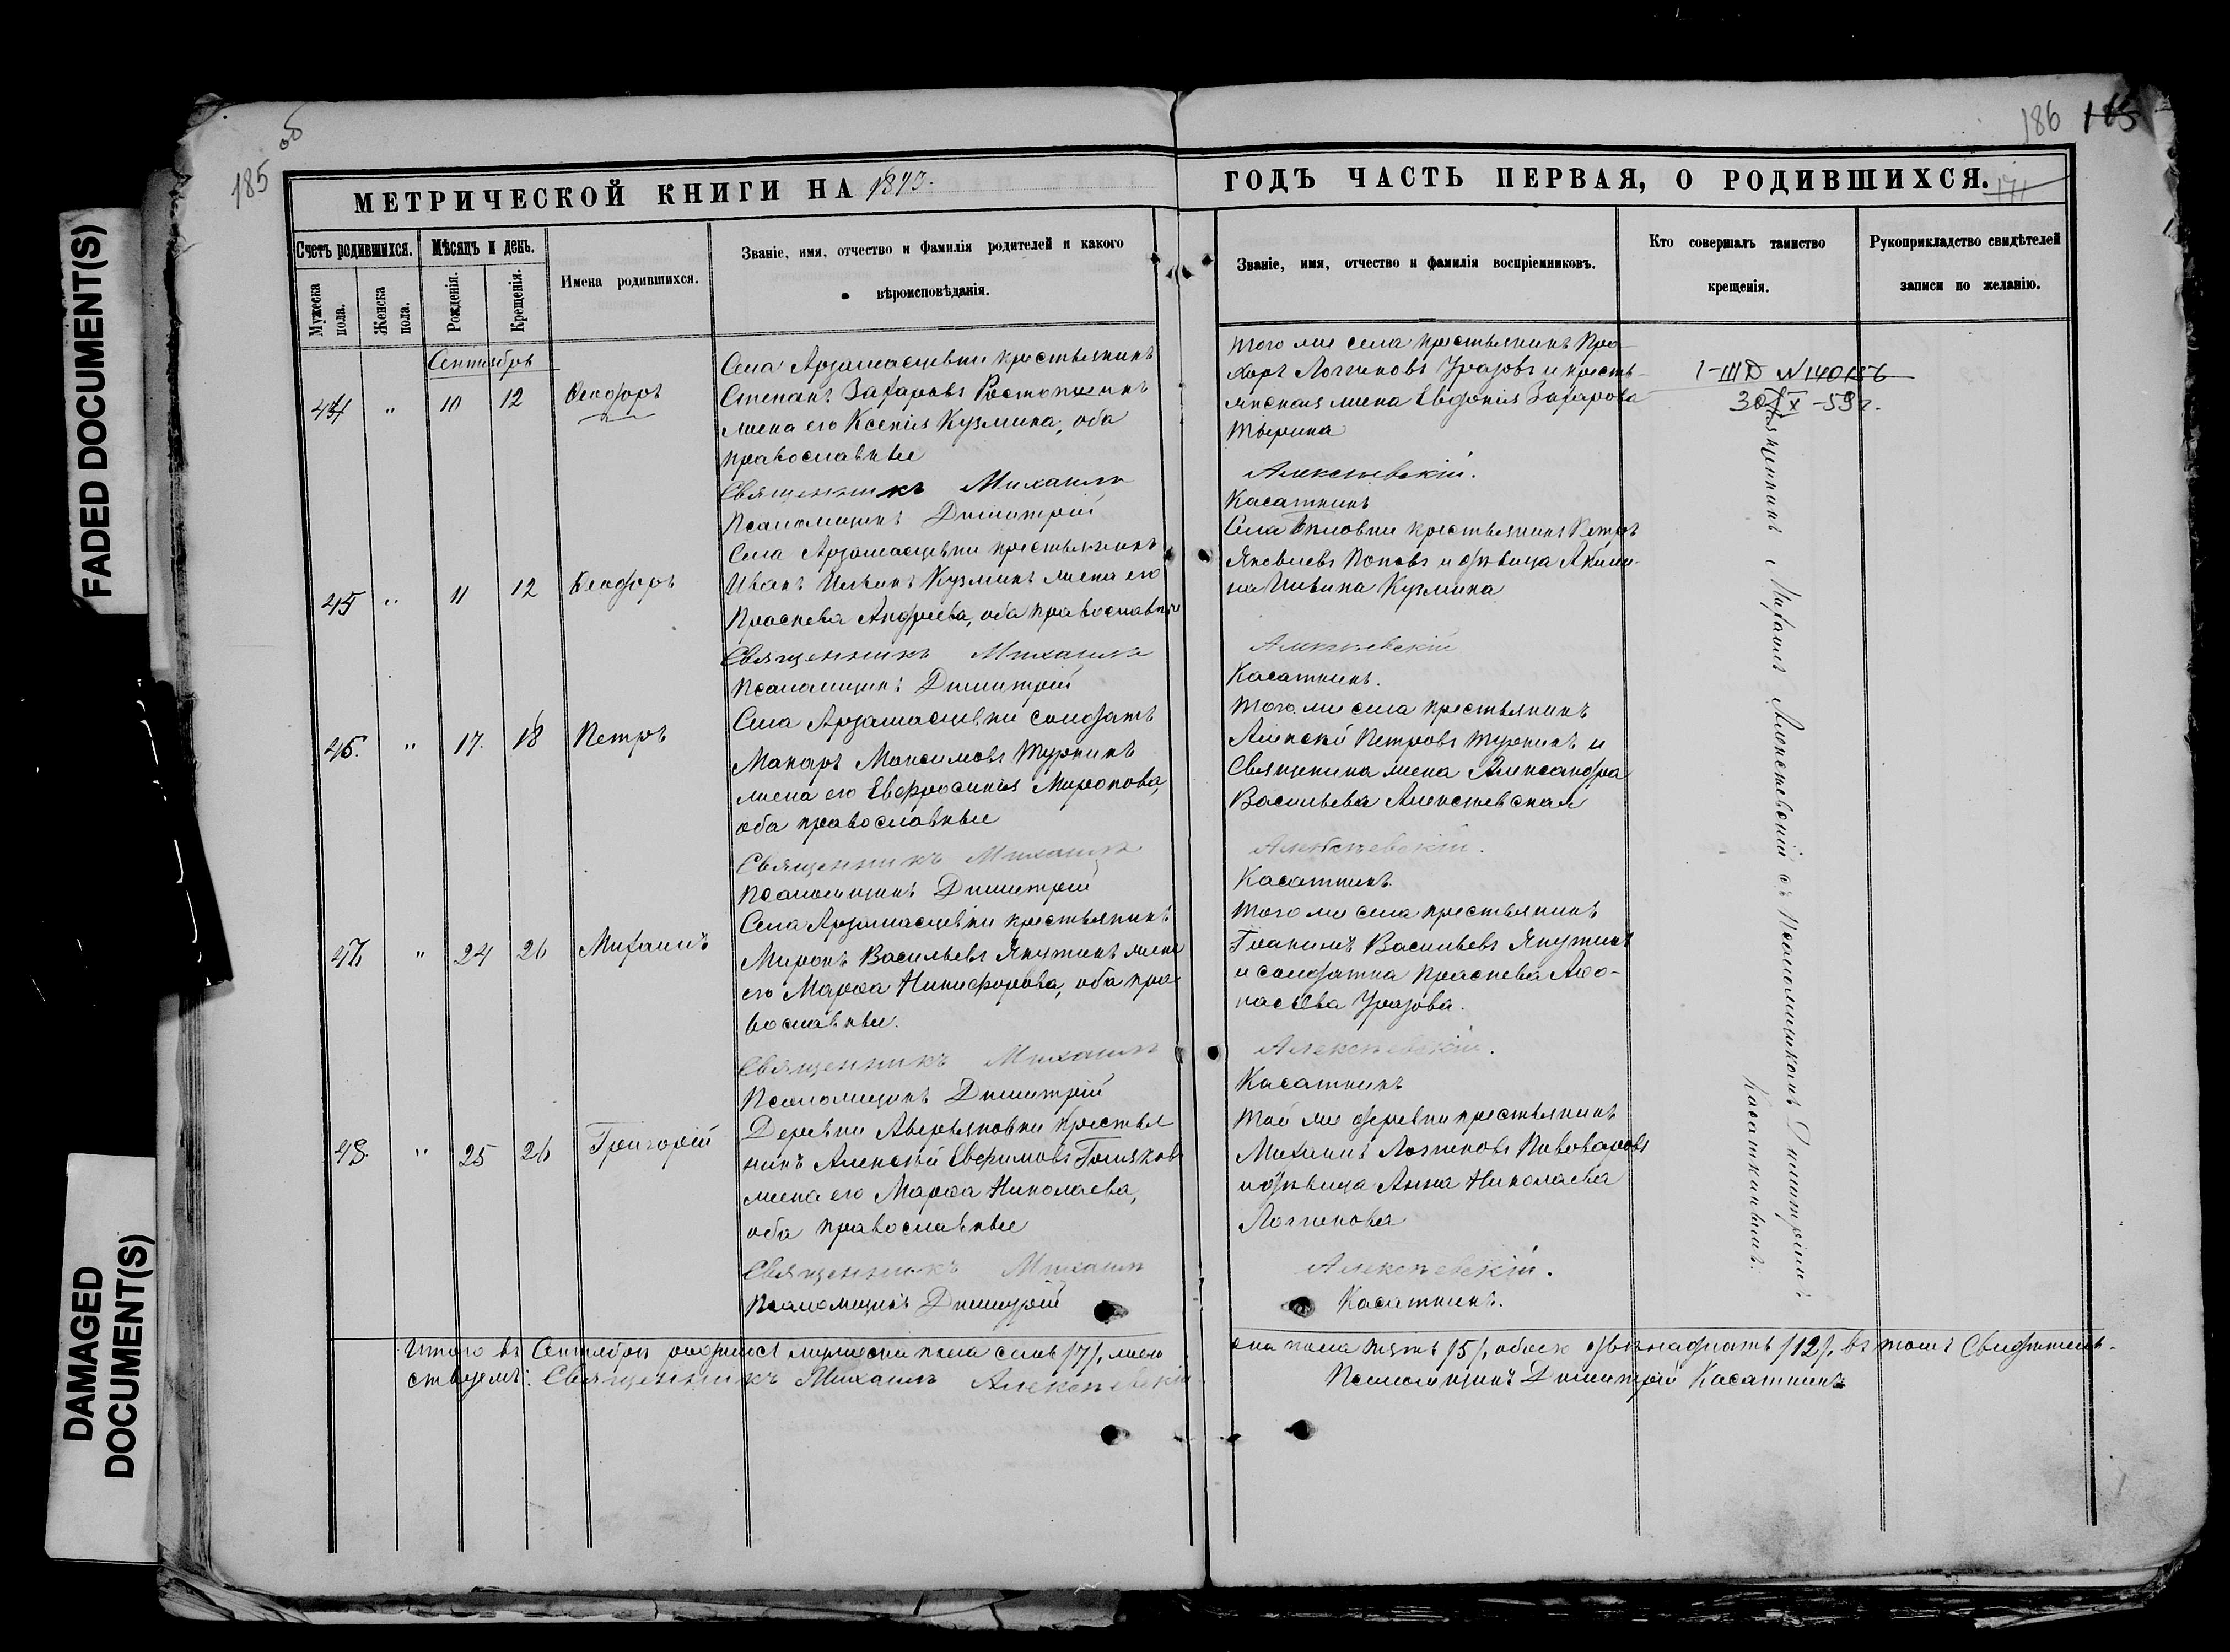 FADED DOCUMENT(S)
DAMAGED
DOCUMENT(S)
185
об
186
МЕТРИЧЕСКОЙ КНИГИ НА
ГОДЪ ЧАСТЬ ПЕРВАЯ, О РОДИВШИХСЯ.
171
Счетъ родившихся.
Мужеска
пола.
Женска
пола.
Мѣсяцъ и день.
Рожденія.
Крещенія.
Имена родившихся.
Званіе, имя, отчество и фамилія родителей и какого
вѣроисповѣданія.
Званіе, имя, отчество и фамилія воспріемниковъ.
Кто совершалъ таинство
крещенія.
Рукоприкладство свидѣтелей
записи по желанію.
Сентябрь
44 " 10 12 Ѳеодоръ
Села Арзамасцевки крестьянинъ
Степанъ Захаровъ Растопшинъ
жена его Ксенія Кузмина, оба
православные
Священникъ Михаилъ
Псаломщикъ Димитрій
того же села крестьянинъ Про-
хоръ Логиновъ Уразовъ и кресть-
янская жена Евдокія Захарова
Алексѣевскій.
Касаткинъ
I-III № 140156
30/X-59г.
45 " 11 12 Ѳеодоръ
Села Арзамасцевки крестьянинъ
Иванъ Ильинъ Кузминъ жена его
Праскева Андреева, оба православные
Священникъ Михаилъ
Псаломщикъ Димитрій
Села крестьянинъ Петръ
Яковлевъ Поповъ и дѣвица Акили-
на Ильина Кузмина
Алексѣевскій
Касаткинъ.
46. " 17. 18 Петръ
Села Арзамасцевки солдатъ
Макаръ Максимовъ Туркинъ
жена его Евфросинія Миронова,
оба православные
Священникъ Михаилъ
Псаломщикъ Димитрій
того же села крестьянинъ
Алексѣй Петровъ Туркинъ и
Священника жена Александра
Васильева Алексѣевская
Алексѣевскій.
Касаткинъ.
47. " 24 26 Михаилъ
Села Арзамасцевки крестьянинъ
Миронъ Васильевъ Якутинъ жена
его Марѳа Никифорова, оба пра-
вославные.
Священникъ Михаилъ
Псаломщикъ Димитрій
того же села крестьянинъ
Іоакимъ Васильевъ Якутинъ
и солдатка Праскева Аѳо-
насьева Уразова.
Алексѣевскій.
Касаткинъ
48. " 25 26 Григорій
Деревни Аверьяновки крестья
нинъ Алексѣй Евфимовъ
жена его Марѳа Николаева,
оба православные
Священникъ Михаилъ
Псаломщикъ Димитрій
той же деревни крестьянинъ
Михаилъ Логиновъ Пивоваровъ
и дѣвица Анна Николаева
Логинова
Алексѣевскій.
Касаткинъ.
Священникъ Михаилъ Алексѣевскій съ Псаломщикомъ Димитріемъ
Касаткинымъ.
Итого въ Сентябрѣ родилось мужеска пола семь /7/, жен
ска пола пять /5/, обоего двѣнадцать /12/, въ томъ Свидѣтель-
ствуемъ: Священникъ Михаилъ Алексѣевскій
Псаломщикъ Димитрій Касаткинъ